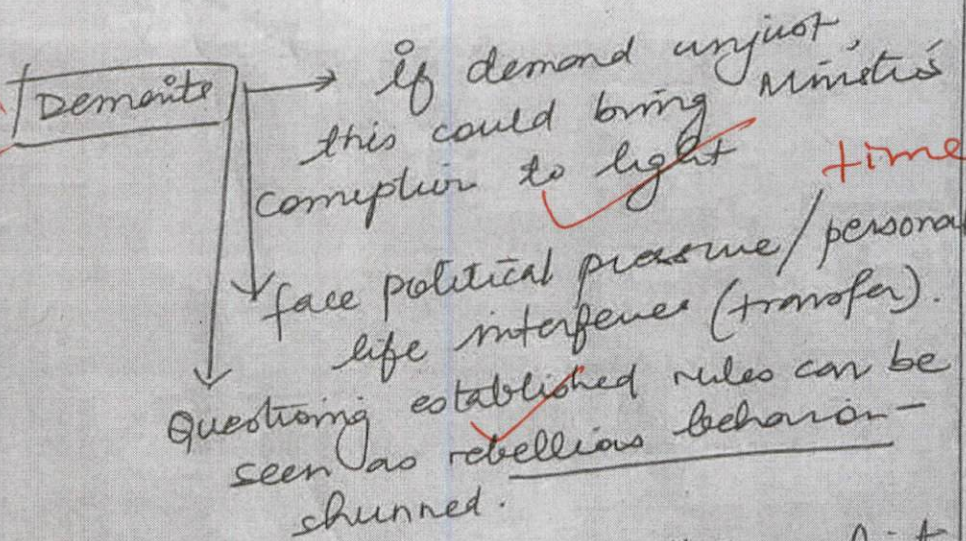 Demerits
if demand unjust,
this could bring Minister's
corruption to light
time
face political pressure/persona
life interference (transfer).
Questioning established rules can be
seen as rebellious behavior-
shunned.